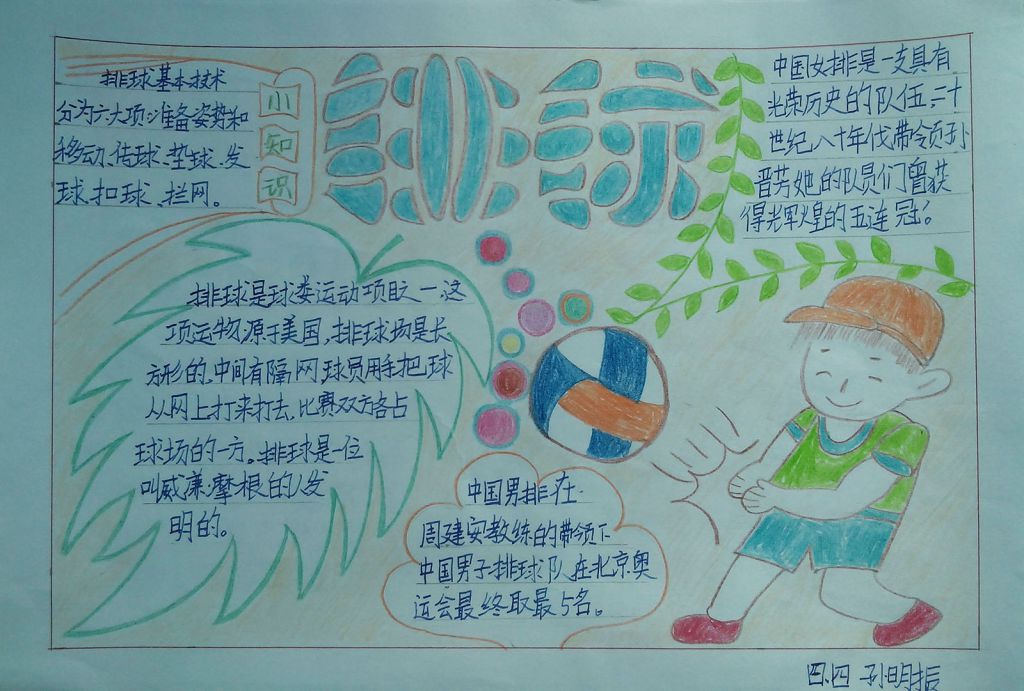 排球基本技术
分为六大项:准备姿势和
移动、传球、垫球、发
球、扣球、拦网。
小
知
识
排球
中国女排是一支具有
光荣历史的队伍,二十
世纪,八十年代,带领孙
晋芳她的队员们曾获
得光辉火皇的五连冠。
排球是球类运动项目之一,这
项运物源于美国,排球场是长
方形的,中间有隔网,球员用手把球
从网上打来打去,比赛双方各占
球场的一方。排球是一位
叫威廉摩根的人发
明的。
中国男排在
周建安教练的带领下
中国男子排球队在北京奥
运会最终取最5名。
四.四 孙明振